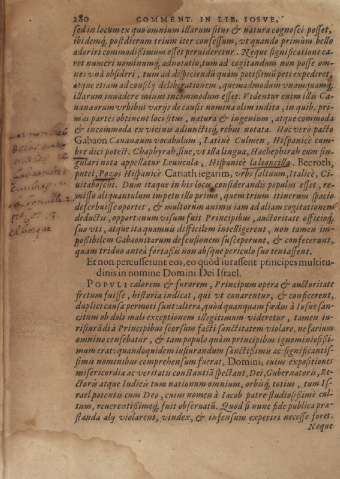 280 COMMENT. IN LIB. IOSVE,
sed in locum ex quo omnium illarum situs & natura cognosci posset,
ibi demùm, postdierum trium iter consessum, vt quando primùm bello
adoriri commodissimum esset peruideretur. Neque significatione ca-
rent numeri nominum, adnotatio, tum ad cogitandum non posse om-
nes vnà obsideri, tum ad dispiciendũ quàm potissimũ peti expediret,
atque etiam ad causæ deliberationem, quemadmodum vnamquamq;
illarum inuadere minimè incommodum esset. Videntur enim illis Ca-
nanæorum vrbibus varijs de causis nomina olim indita, in quib. pri-
mas partes obtinent loci situs, natura & ingenium, atque commoda
& incommoda ex vicinis adiunctisq́; rebus notata. Hoc verò pacto
Gabaon Cananæum vocabulum, Latinè Culmen, Hispanicè cum-
bre dici poteit. Chaphyrah, siue, vt illa lingua, Hachephirah cum sin-
gulari nota appellatur Leuncula, Hispanicè laleonzilla. Beeroth,
putei, Poços Hispanicè. Cariath iegarim, vrbs saltuum, Italicè, Ci-
uita boschi. Dum itaque in his locis considerandis populus esset, re-
misso aliquantulum impetu illo primo, quem trium itinerum spacio
deserbuisse oportet, & multorum animis iam ad aliam cogitationem
deductis, opportunum visum fuit Principibus, auctoritate officioq́;
suo vti, atque ita quamuis difficilem intelligerent, non tamen im-
possibilem Gabaonitarum defensionem susceperunt, & confecerunt,
quam triduo antea fortassis non absque periculo sus tentassent.
Et non percusserunt eos, eo quòd iurassent principes multitu-
dinis in nomine Domini Dei Israel.
POPULI calorem & furorem, Principum opera & auctoritate
fretum fuisse, historia indicat, qui vt conarentur, & conficerent,
duplici causa permoti sunt: altera, quòd quanquam fœdus à Iosue san-
citum ob dolimali exceptionem illegitimum videretur, tamen iu-
risiurādi à Principibus seorsum facti sanctitatem violare, nefarium
omnino censebatur, & tam populo quàm principibus ignominiosissi-
mum erat: quandoquidem iusiurandum sanctissimis ac significantis-
simis nominibus comprehensum fuerat, Domini, cuius expositiones
misericordia ac veritatis constantiā spectant, Dei, Gubernatoris, Re-
ctoris atque Iudicis tum nationum omnium, orbisq́; totius, tum Is-
rael potentis cum Deo, cuius nomen à Iacob patre studiosissimi cul-
tum, reuerentissimeq́; fuit obseruatũ. Quod si nunc fide publica præ-
standa aliq̃ violarent, vindex, & infensum experiri necesse foret.
Neque